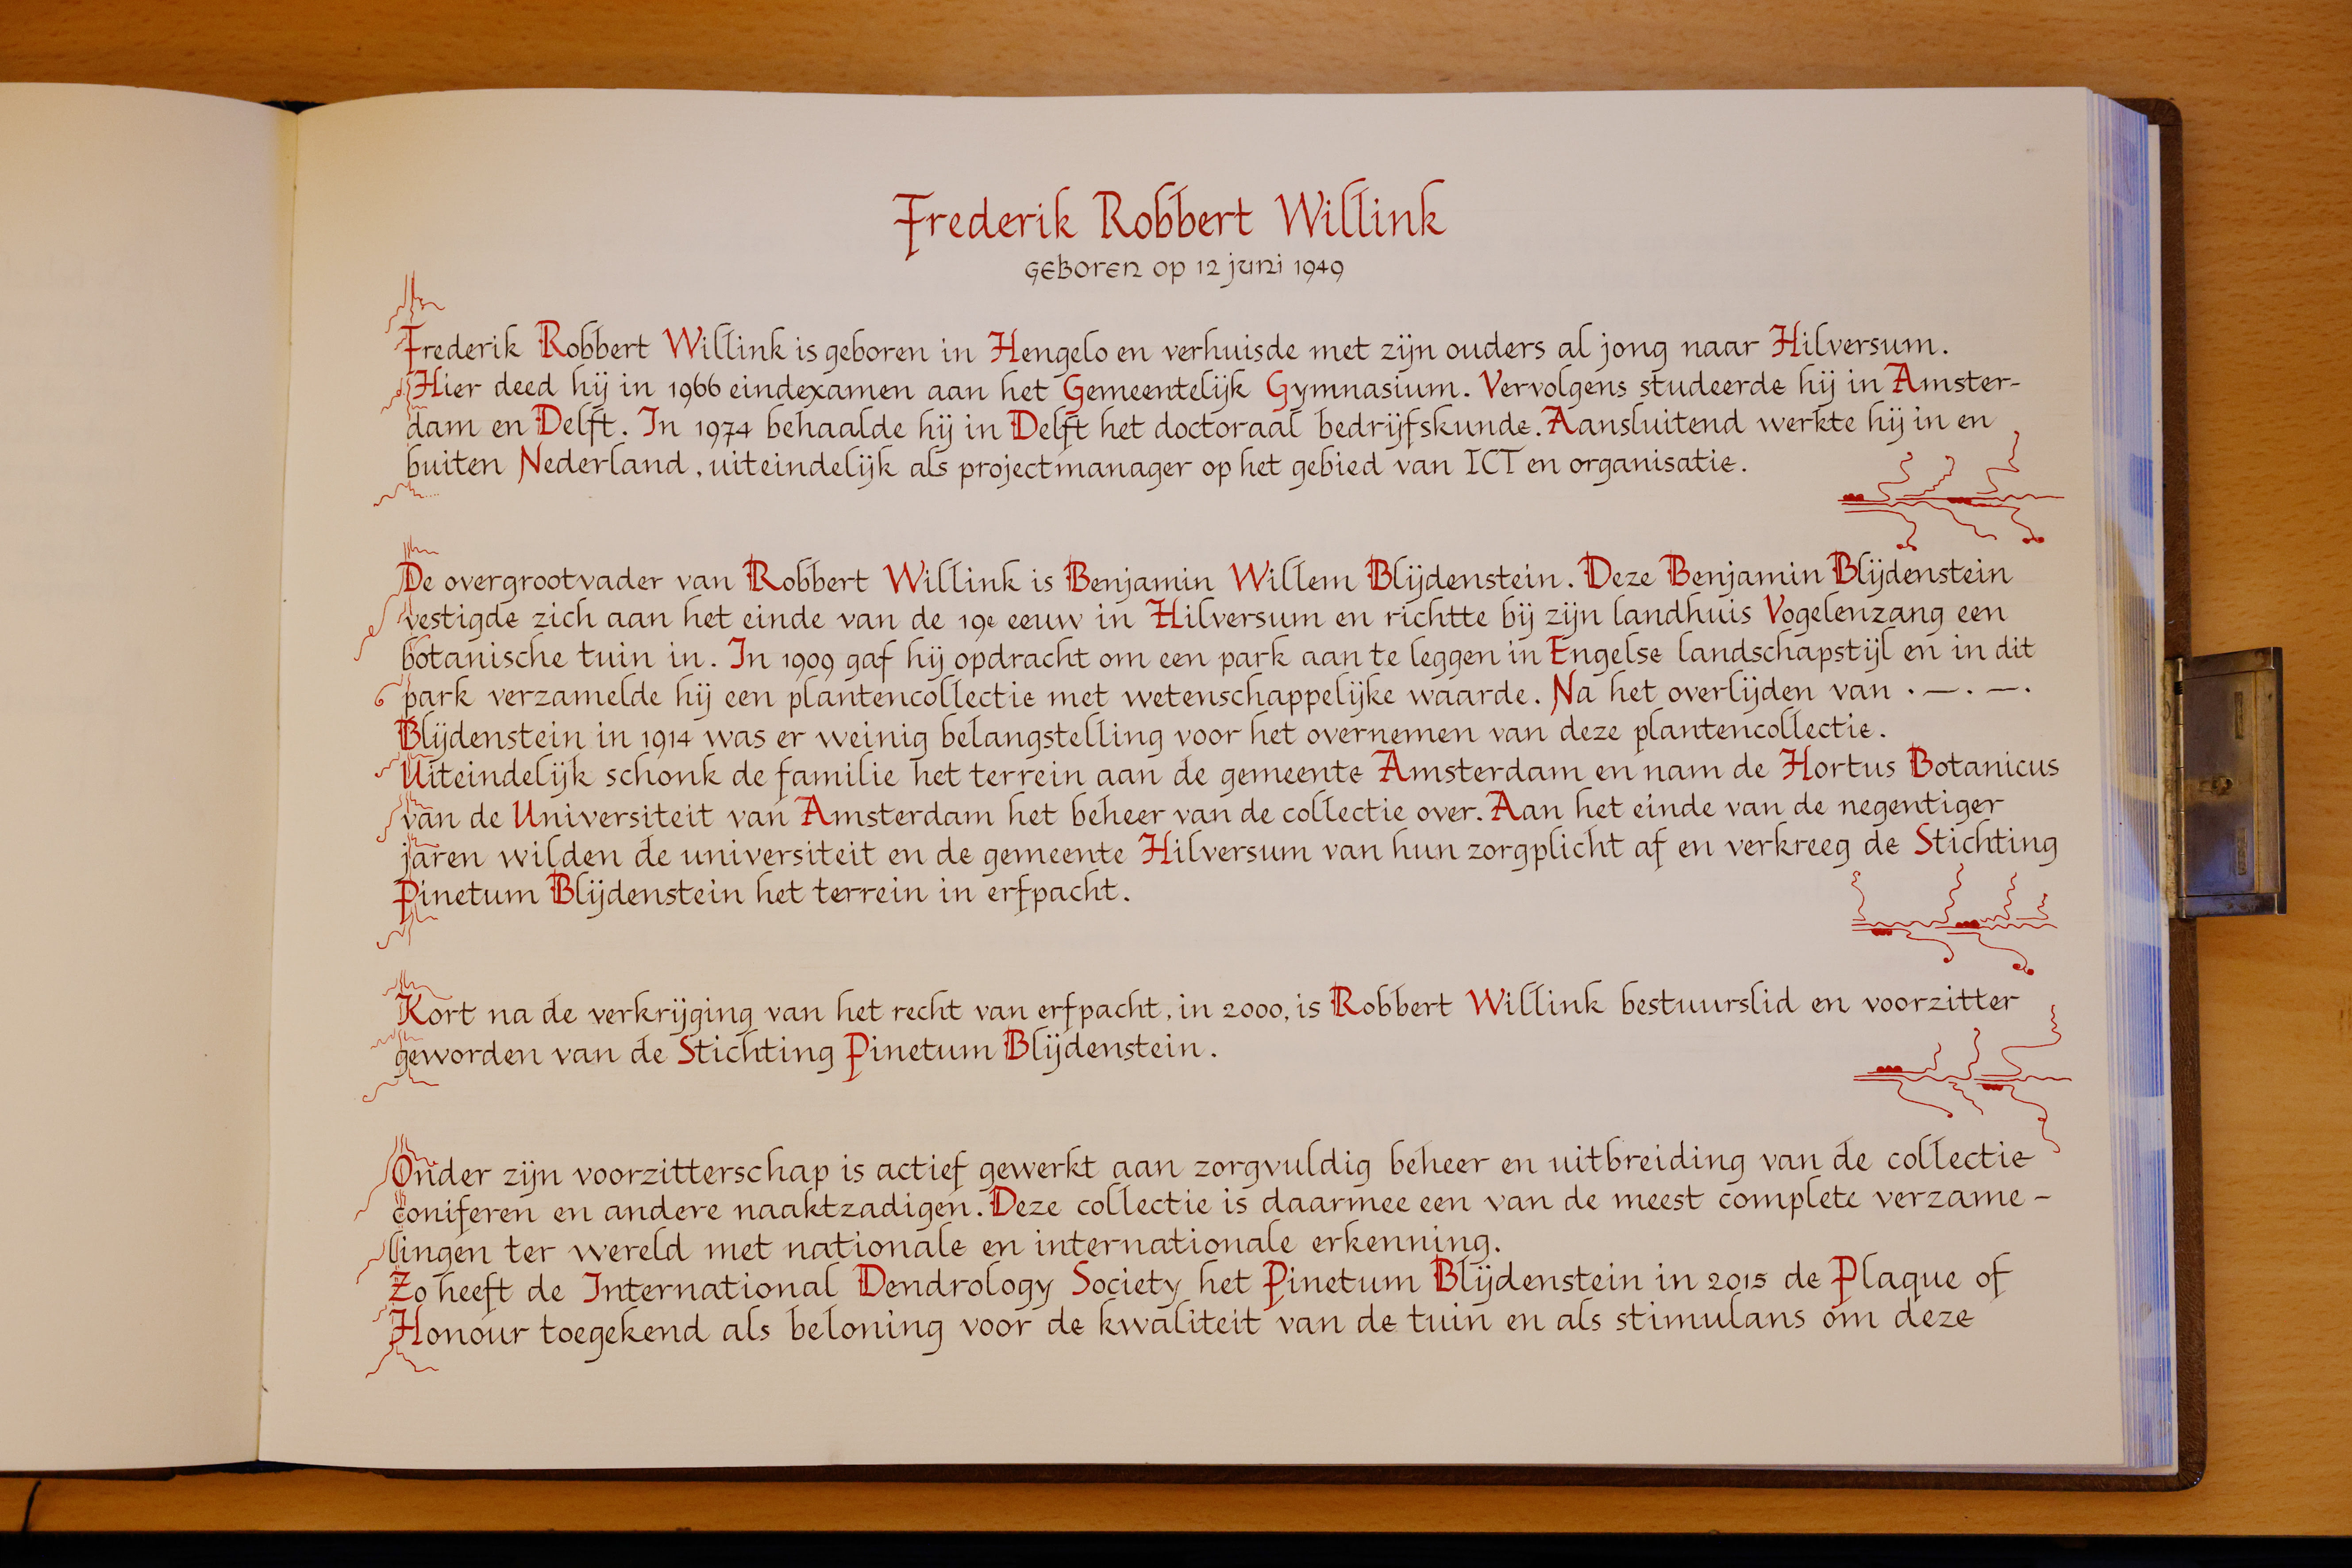 Frederik Robbert Willink
geboren op 12 juni 1949
Frederik Robbert Willink is geboren in Hengelo en verhuisde met zijn ouders al jong naar Hilversum.
Hier deed hij in 1966 eindexamen aan het Gemeentelijk Gymnasium. Vervolgens studeerde hij in Amster-
dam en Delft. In 1974 behaalde hij in Delft het doctoraal bedrijfskunde. Aansluitend werkte hij in en
buiten Nederland, uiteindelijk als projectmanager op het gebied van ICT en organisatie.
De overgrootvader van Robbert Willink is Benjamin Willem Blijdenstein. Deze Benjamin Blijdenstein
vestigde zich aan het einde van de 19e eeuw in Hilversum en richtte bij zijn landhuis Vogelenzang een
botanische tuin in. In 1909 gaf hij opdracht om een park aan te leggen in Engelse landschapstijl en in dit
park verzamelde hij een plantencollectie met wetenschappelijke waarde. Na het overlijden van . — . — .
Blijdenstein in 1914 was er weinig belangstelling voor het overnemen van deze plantencollectie.
Uiteindelijk schonk de familie het terrein aan de gemeente Amsterdam en nam de Hortus Botanicus
van de Universiteit van Amsterdam het beheer van de collectie over. Aan het einde van de negentiger
jaren wilden de universiteit en de gemeente Hilversum van hun zorgplicht af en verkreeg de Stichting
Pinetum Blijdenstein het terrein in erfpacht.
Kort na de verkrijging van het recht van erfpacht, in 2000, is Robbert Willink bestuurslid en voorzitter
geworden van de Stichting Pinetum Blijdenstein.
Onder zijn voorzitterschap is actief gewerkt aan zorgvuldig beheer en uitbreiding van de collectie
coniferen en andere naaktzadigen. Deze collectie is daarmee een van de meest complete verzame-
lingen ter wereld met nationale en internationale erkenning.
Zo heeft de International Dendrology Society het Pinetum Blijdenstein in 2015 de Plaque of
Honour toegekend als beloning voor de kwaliteit van de tuin en als stimulans om deze